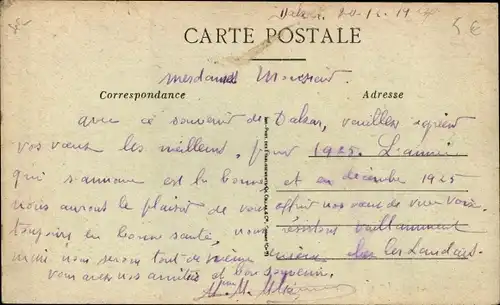 Dakar
CARTE POSTALE
Mesdames Monsieur
Correspondance
Adresse
avec ce souvenir de Dakar, veuillez agréer
vos vœux les meilleurs, pour 1925. L'année
qui s'annonce est la bonne et en décembre 1925
nous aurons le plaisir de vous offrir nos vœux de vive voix
toujours en bonne santé, nous résistons vaillamment
mais nous serons tout de même chez les Landais
vous avez nos amitiés et bon souvenir.